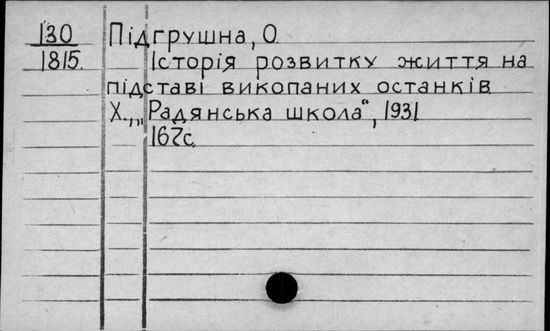 130 Підгрушна, О.
1815. Історія розвитку життя на
підставі викопаних останків
Х., „Радянська школа“, 1931
167с.